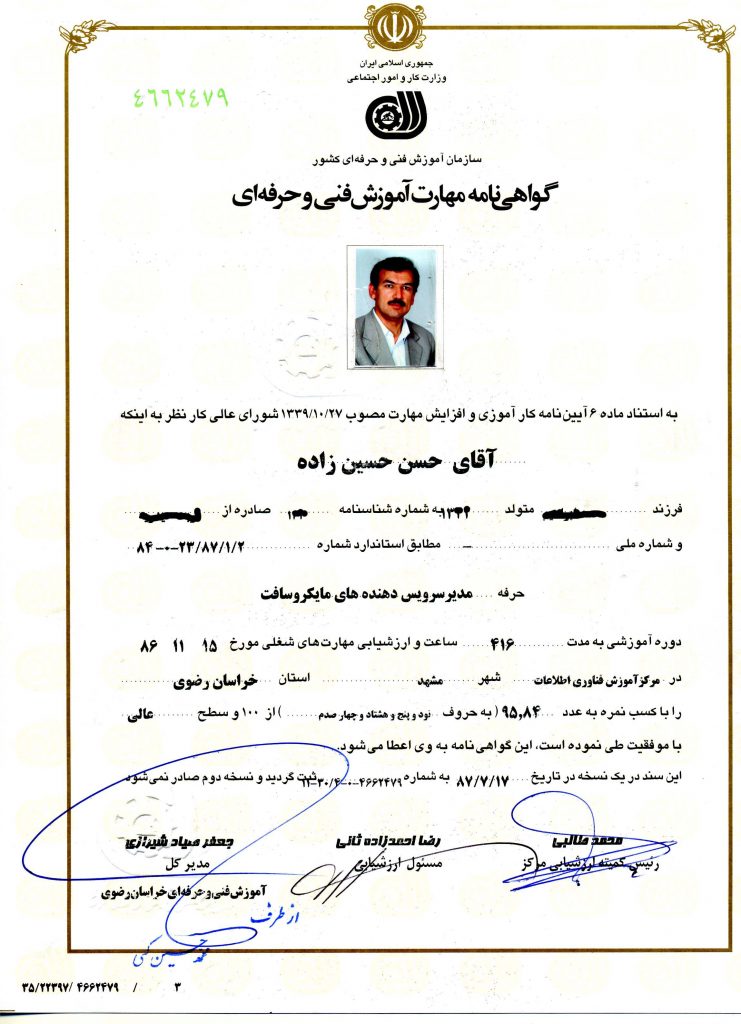 جمهوری اسلامی ایران
وزارت کار و امور اجتماعی
٤٦٦٢٤٧٩
سازمان آموزش فنی و حرفه‌ای کشور
گواهی‌نامه مهارت آموزش فنی و حرفه‌ای
به استناد ماده ۶ آیین‌نامه کارآموزی و افزایش مهارت مصوب ۱۳۳۹/۱۰/۲۷ شورای عالی کار نظر به اینکه
آقای حسن حسین زاده
فرزند متولد به شماره شناسنامه صادره از
و شماره ملی - مطابق استاندارد شماره ۸۴-۰-۲۳/۸۷/۱/۲
حرفه مدیر سرویس دهنده های مایکروسافت
دوره آموزشی به مدت ۴۱۶ ساعت و ارزشیابی مهارت‌های شغلی مورخ ۱۵ ۱۱ ۸۶
در مرکز آموزش فناوری اطلاعات شهر مشهد استان خراسان رضوی
را با کسب نمره به عدد ۹۵,۸۴ (به حروف نود و پنج و هشتاد و چهار صدم) از ۱۰۰ و سطح عالی
با موفقیت طی نموده است، این گواهی‌نامه به وی اعطا می‌شود.
این سند در یک نسخه در تاریخ ۸۷/۷/۱۷ به شماره ۴۶۶۲۴۷۹-۰-۱۱-۳۰/۴ ثبت گردید و نسخه دوم صادر نمی‌شود
محمد طالبی
رئیس کمیته ارزشیابی مرکز
رضا احمدزاده ثانی
مسئول ارزشیابی
جعفر صیاد شیرازی
مدیر کل
آموزش فنی و حرفه‌ای خراسان رضوی
از طرف
۳۵/۲۲۳۹۷/ ۴۶۶۲۴۷۹ / ۳